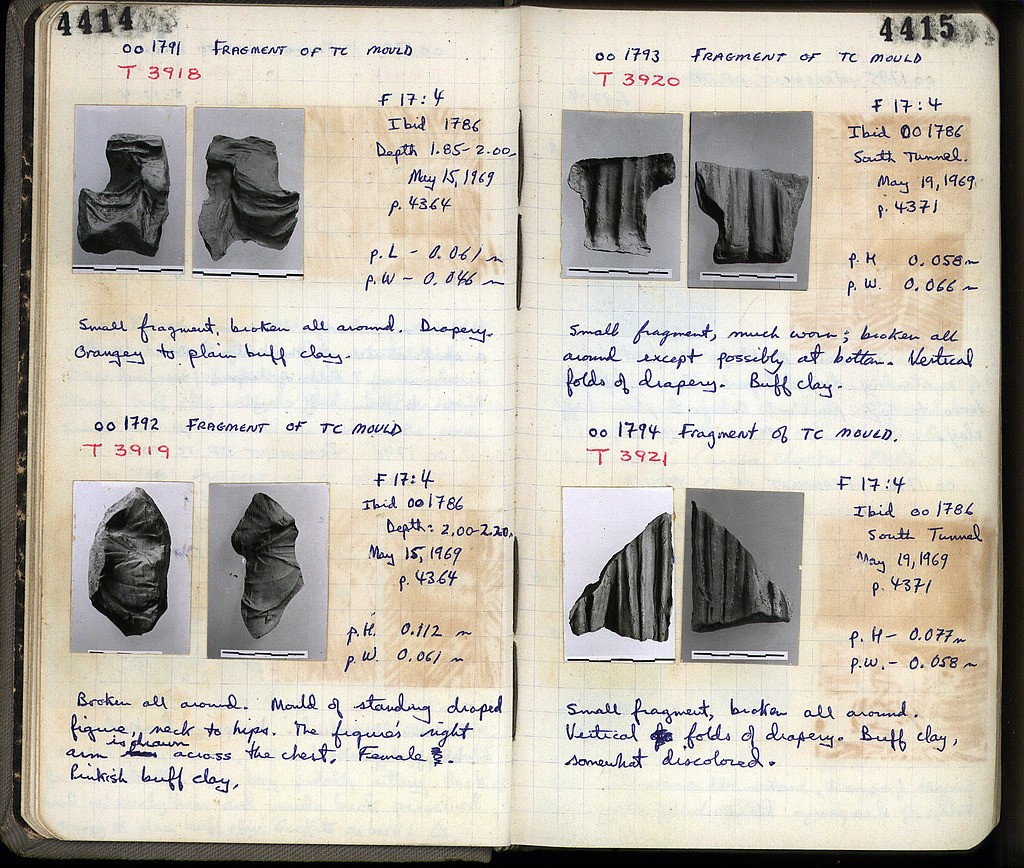 4414
oo 1791 FRAGMENT OF TC MOULD
T 3918
F 17:4
Ibid 1786
Depth 1.85-2.00
May 15, 1969
p. 4364
p. L - 0.061 m
p. W - 0.046 m
Small fragment, broken all around. Drapery.
Orangey to plain buff clay.
oo 1792 FRAGMENT OF TC MOULD
T 3919
F 17:4
Ibid oo 1786
Depth: 2.00-2.20
May 15, 1969
p. 4364
p. H. 0.112 m
p. W. 0.061 m
Broken all around. Mould of standing draped
figure, neck to hips. The figure's right
arm is drawn across the chest. Female.
Pinkish buff clay.
4415
oo 1793 FRAGMENT OF TC MOULD
T 3920
F 17:4
Ibid oo 1786
South Tunnel.
May 19, 1969
p. 4371
p. H 0.058 m
p. W. 0.066 m
Small fragment, much worn; broken all
around except possibly at bottom. Vertical
folds of drapery. Buff clay.
oo 1794 Fragment of TC MOULD.
T 3921
F 17:4
Ibid oo 1786
South Tunnel
May 19, 1969
p. 4371
p. H - 0.077 m
p. W. - 0.058 m
Small fragment, broken all around.
Vertical folds of drapery. Buff clay,
somewhat discolored.